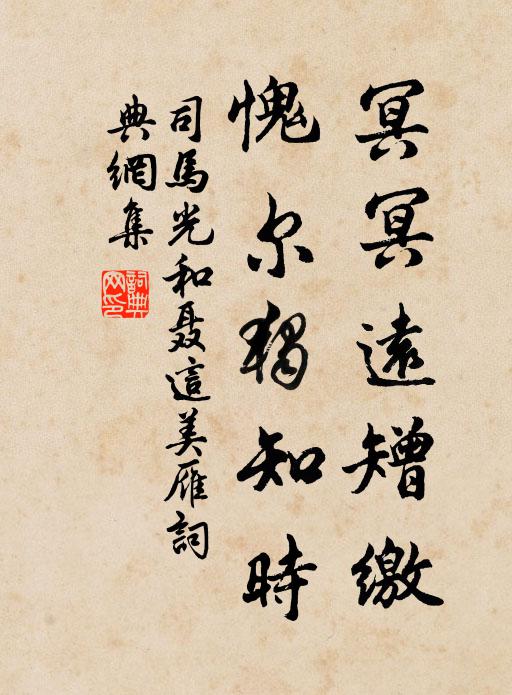 冥冥遠矰繳
愧尔獨知時
司馬光和聂這美雁詞
典網集
詞典网印